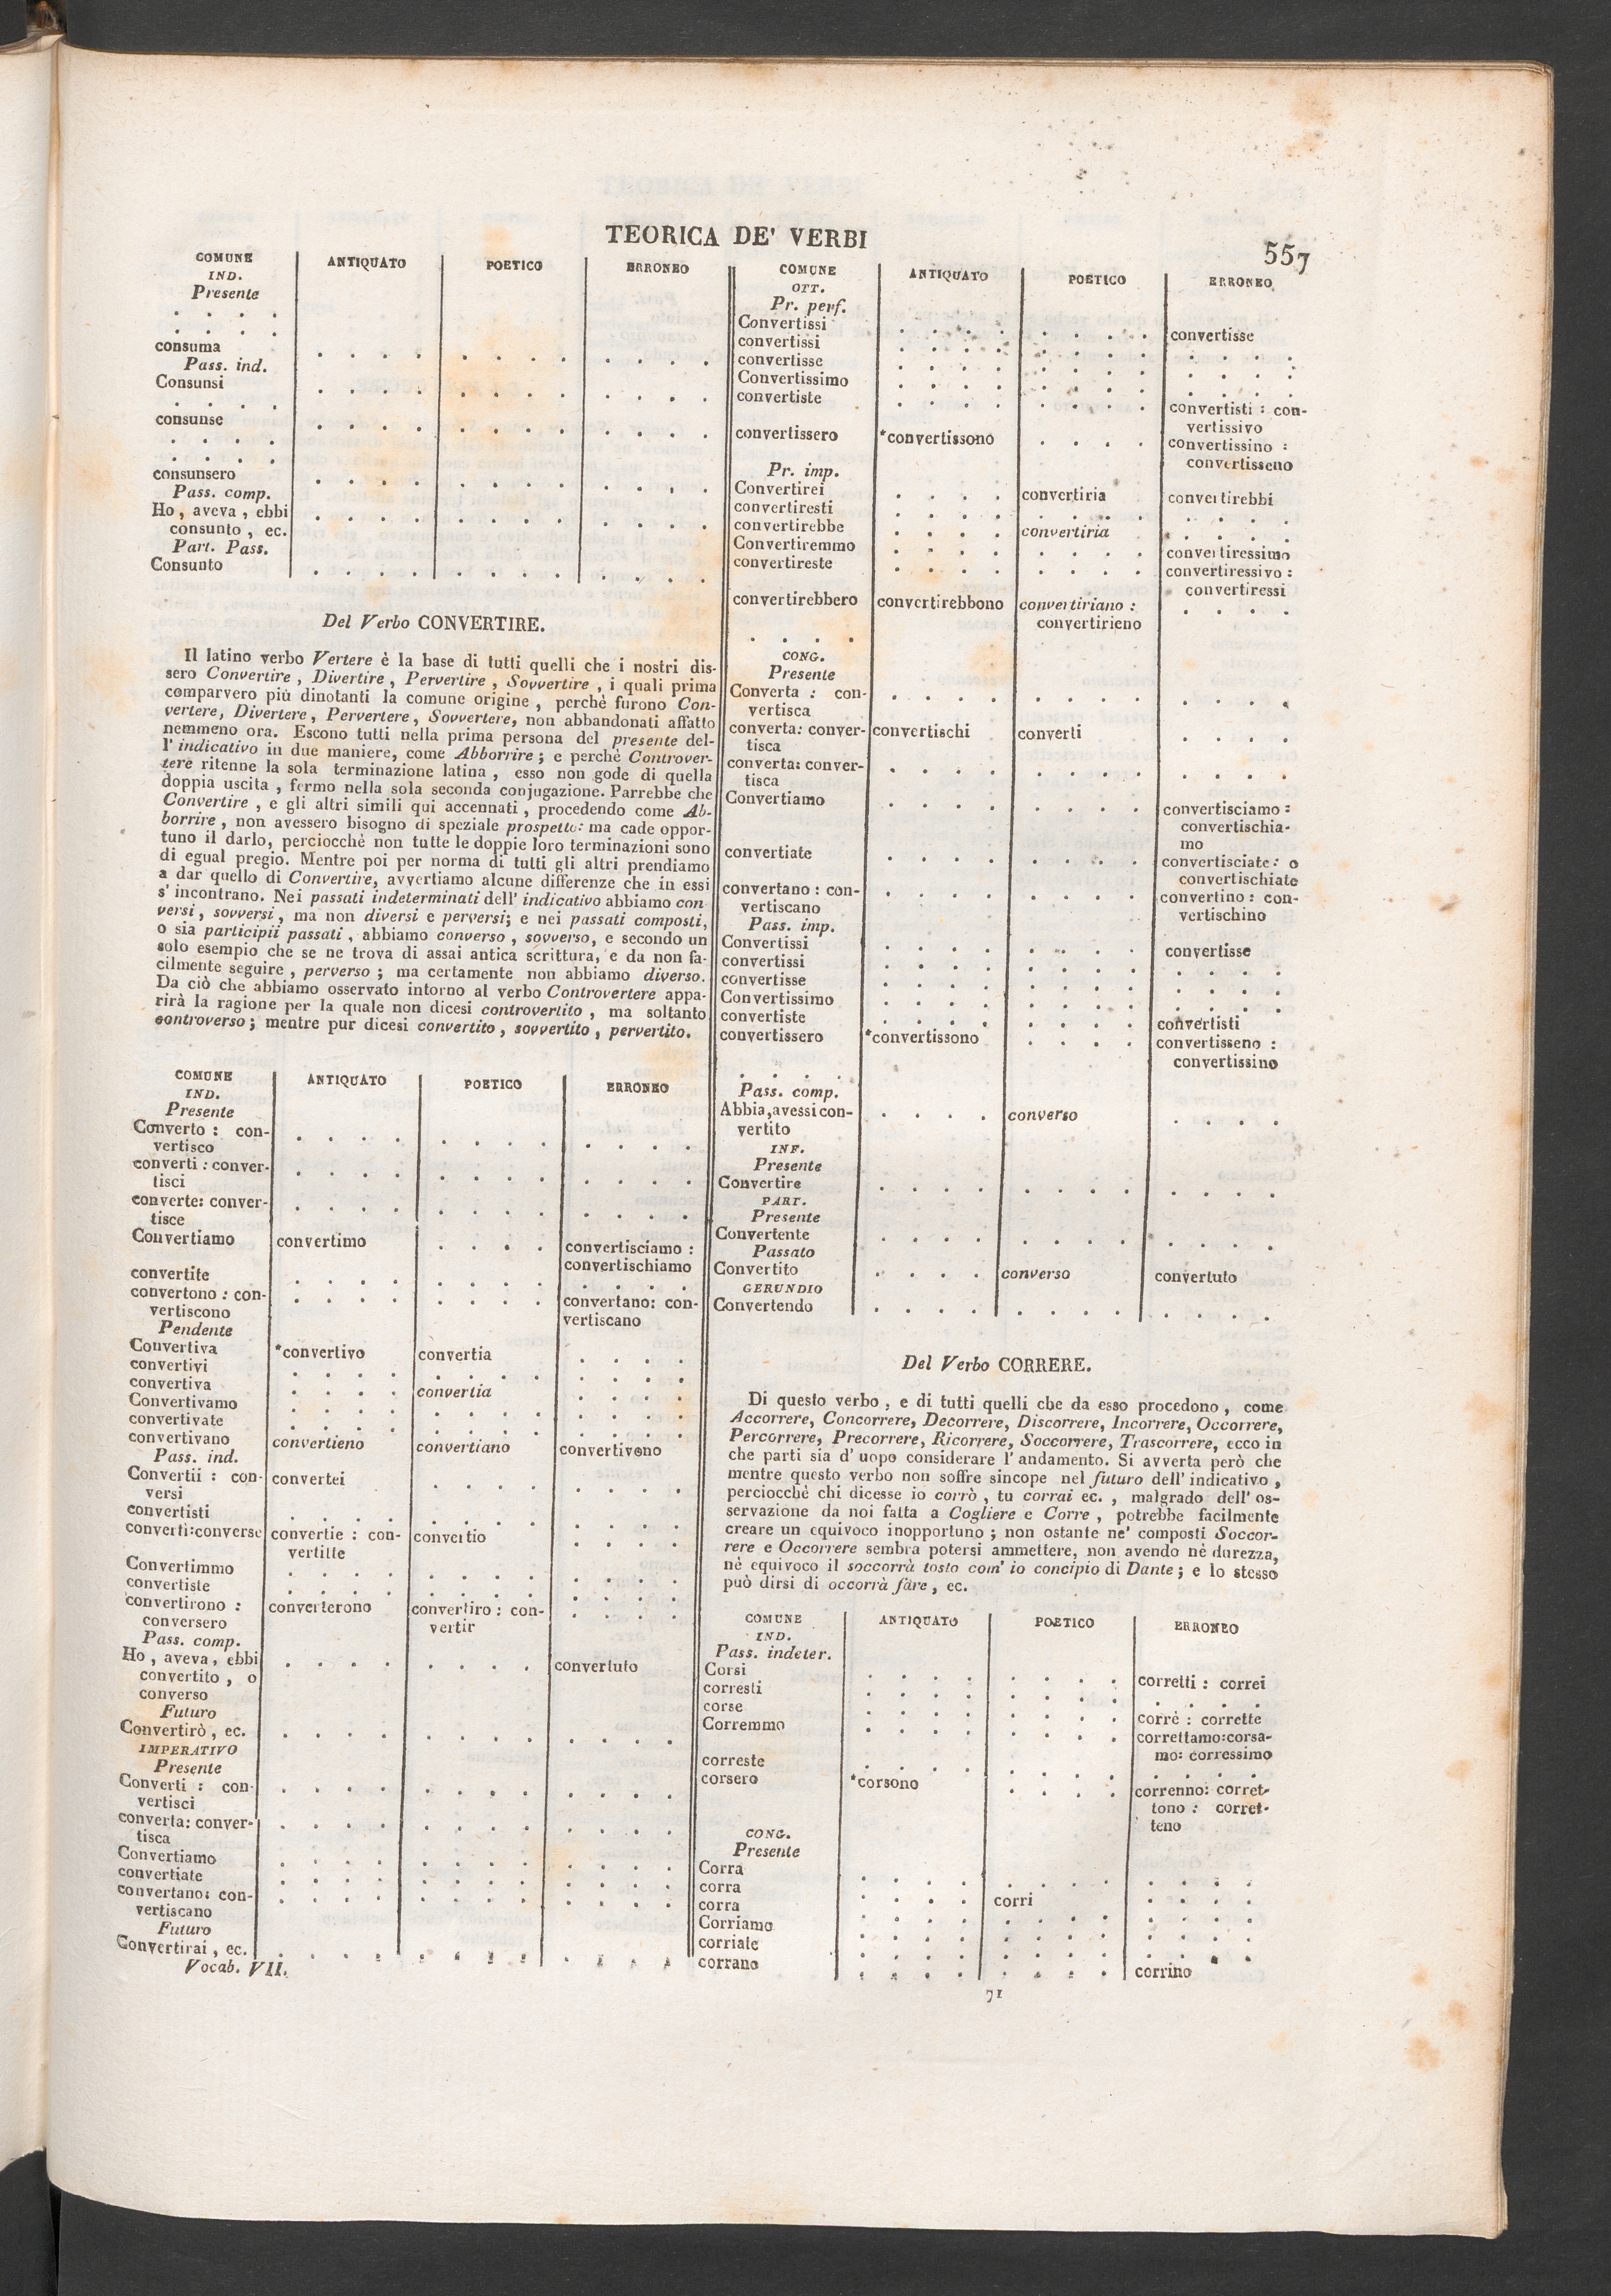 TEORICA DE' VERBI
557
COMUNE ANTIQUATO POETICO ERRONEO
IND.
Presente
. . . .
. . . .
consuma . . . . . . . . . . . .
Pass. ind.
Consunsi . . . . . . . . . . . .
. . . .
consunse . . . . . . . . . . . .
. . . .
. . . .
consunsero . . . . . . . . . . . .
Pass. comp.
Ho, aveva, ebbi . . . . . . . . . . . .
consunto, ec.
Part. Pass.
Consunto . . . . . . . . . . . .
Del Verbo CONVERTIRE.
Il latino verbo Vertere è la base di tutti quelli che i nostri dis-
sero Convertire, Divertire, Pervertire, Sovvertire, i quali prima
comparvero più dinotanti la comune origine, perchè furono Con-
vertere, Divertere, Pervertere, Sovvertere, non abbandonati affatto
nemmeno ora. Escono tutti nella prima persona del presente del-
l'indicativo in due maniere, come Abborrire; e perchè Controver-
tere ritenne la sola terminazione latina, esso non gode di quella
doppia uscita, fermo nella sola seconda conjugazione. Parrebbe che
Convertire, e gli altri simili qui accennati, procedendo come Ab-
borrire, non avessero bisogno di speziale prospetto: ma cade oppor-
tuno il darlo, perciocchè non tutte le doppie loro terminazioni sono
di egual pregio. Mentre poi per norma di tutti gli altri prendiamo
a dar quello di Convertire, avvertiamo alcune differenze che in essi
s'incontrano. Nei passati indeterminati dell'indicativo abbiamo con
versi, sovversi, ma non diversi e perversi; e nei passati composti,
o sia participii passati, abbiamo converso, sovverso, e secondo un
solo esempio che se ne trova di assai antica scrittura, e da non fa-
cilmente seguire, perverso; ma certamente non abbiamo diverso.
Da ciò che abbiamo osservato intorno al verbo Controvertere appa-
rirà la ragione per la quale non dicesi controvertito, ma soltanto
controverso; mentre pur dicesi convertito, sovvertito, pervertito.
COMUNE ANTIQUATO POETICO ERRONEO
IND.
Presente
Converto: con- . . . . . . . . . . . .
vertisco
converti: conver- . . . . . . . . . . . .
tisci
converte: conver- . . . . . . . . . . . .
tisce
Convertiamo convertimo . . . . convertisciamo:
convertischiamo
convertite . . . . . . . . . . . .
convertono: con- . . . . . . . . convertano: con-
vertiscono vertiscano
Pendente
Convertiva *convertivo convertia . . . .
convertivi . . . . . . . . . . . .
convertiva . . . . convertia . . . .
Convertivamo . . . . . . . . . . . .
convertivate . . . . . . . . . . . .
convertivano convertieno convertiano convertivono
Pass. ind.
Convertii: con- convertei . . . . . . . .
versi
convertisti . . . . . . . . . . . .
convertì:converse convertie: con- convertio . . . .
vertitte
Convertimmo . . . . . . . . . . . .
convertiste . . . . . . . . . . . .
convertirono: converterono convertiro: con- . . . .
conversero vertir
Pass. comp.
Ho, aveva, ebbi . . . . . . . . convertuto
convertito, o
converso
Futuro
Convertirò, ec. . . . . . . . . . . . .
IMPERATIVO
Presente
Converti: con- . . . . . . . . . . . .
vertisci
converta: conver- . . . . . . . . . . . .
tisca
Convertiamo . . . . . . . . . . . .
convertiate . . . . . . . . . . . .
convertano: con- . . . . . . . . . . . .
vertiscano
Futuro
Convertirai, ec. . . . . . . . . . . . .
Vocab. VII.
COMUNE ANTIQUATO POETICO ERRONEO
OTT.
Pr. perf.
Convertissi . . . . . . . . convertisse
convertissi . . . . . . . . . . . .
convertisse . . . . . . . . . . . .
Convertissimo . . . . . . . . . . . .
convertiste . . . . . . . . convertisti: con-
vertissivo
convertissero *convertissono . . . . convertissino:
convertisseno
Pr. imp.
Convertirei . . . . convertiria convertirebbi
convertiresti . . . . . . . . . . . .
convertirebbe . . . . convertiria . . . .
Convertiremmo . . . . . . . . convertiressimo
convertireste . . . . . . . . convertiressivo:
convertiressi
convertirebbero convertirebbono convertiriano: . . . .
convertirieno
. . . .
CONG.
Presente
Converta: con- . . . . . . . . . . . .
vertisca
converta: conver- convertischi converti . . . .
tisca
converta: conver- . . . . . . . . . . . .
tisca
Convertiamo . . . . . . . . convertisciamo:
convertischia-
mo
convertiate . . . . . . . . convertisciate: o
convertischiate
convertano: con- . . . . . . . . convertino: con-
vertiscano vertischino
Pass. imp.
Convertissi . . . . . . . . convertisse
convertissi . . . . . . . . . . . .
convertisse . . . . . . . . . . . .
Convertissimo . . . . . . . . . . . .
convertiste . . . . . . . . convertisti
convertissero *convertissono . . . . convertisseno:
convertissino
. . . .
Pass. comp.
Abbia,avessi con- . . . . converso . . . .
vertito
INF.
Presente
Convertire . . . . . . . . . . . .
PART.
Presente
Convertente . . . . . . . . . . . .
Passato
Convertito . . . . converso convertuto
GERUNDIO
Convertendo . . . . . . . . . . . .
Del Verbo CORRERE.
Di questo verbo, e di tutti quelli che da esso procedono, come
Accorrere, Concorrere, Decorrere, Discorrere, Incorrere, Occorrere,
Percorrere, Precorrere, Ricorrere, Soccorrere, Trascorrere, ecco in
che parti sia d'uopo considerare l'andamento. Si avverta però che
mentre questo verbo non soffre sincope nel futuro dell'indicativo,
perciocchè chi dicesse io corrò, tu corrai ec., malgrado dell'os-
servazione da noi fatta a Cogliere e Corre, potrebbe facilmente
creare un equivoco inopportuno; non ostante ne' composti Soccor-
rere e Occorrere sembra potersi ammettere, non avendo nè durezza,
nè equivoco il soccorrà tosto com' io concipio di Dante; e lo stesso
può dirsi di occorrà fare, ec.
COMUNE ANTIQUATO POETICO ERRONEO
IND.
Pass. indeter.
Corsi . . . . . . . . corretti: correi
corresti . . . . . . . . . . . .
corse . . . . . . . . corrè: corrette
Corremmo . . . . . . . . correttamo:corsa-
mo: corressimo
correste . . . . . . . . . . . .
corsero *corsono . . . . correnno: corret-
tono: corret-
teno
CONG.
Presente
Corra . . . . . . . . . . . .
corra . . . . corri . . . .
corra . . . . . . . . . . . .
Corriamo . . . . . . . . . . . .
corriate . . . . . . . . . . . .
corrano . . . . . . . . corrino
71